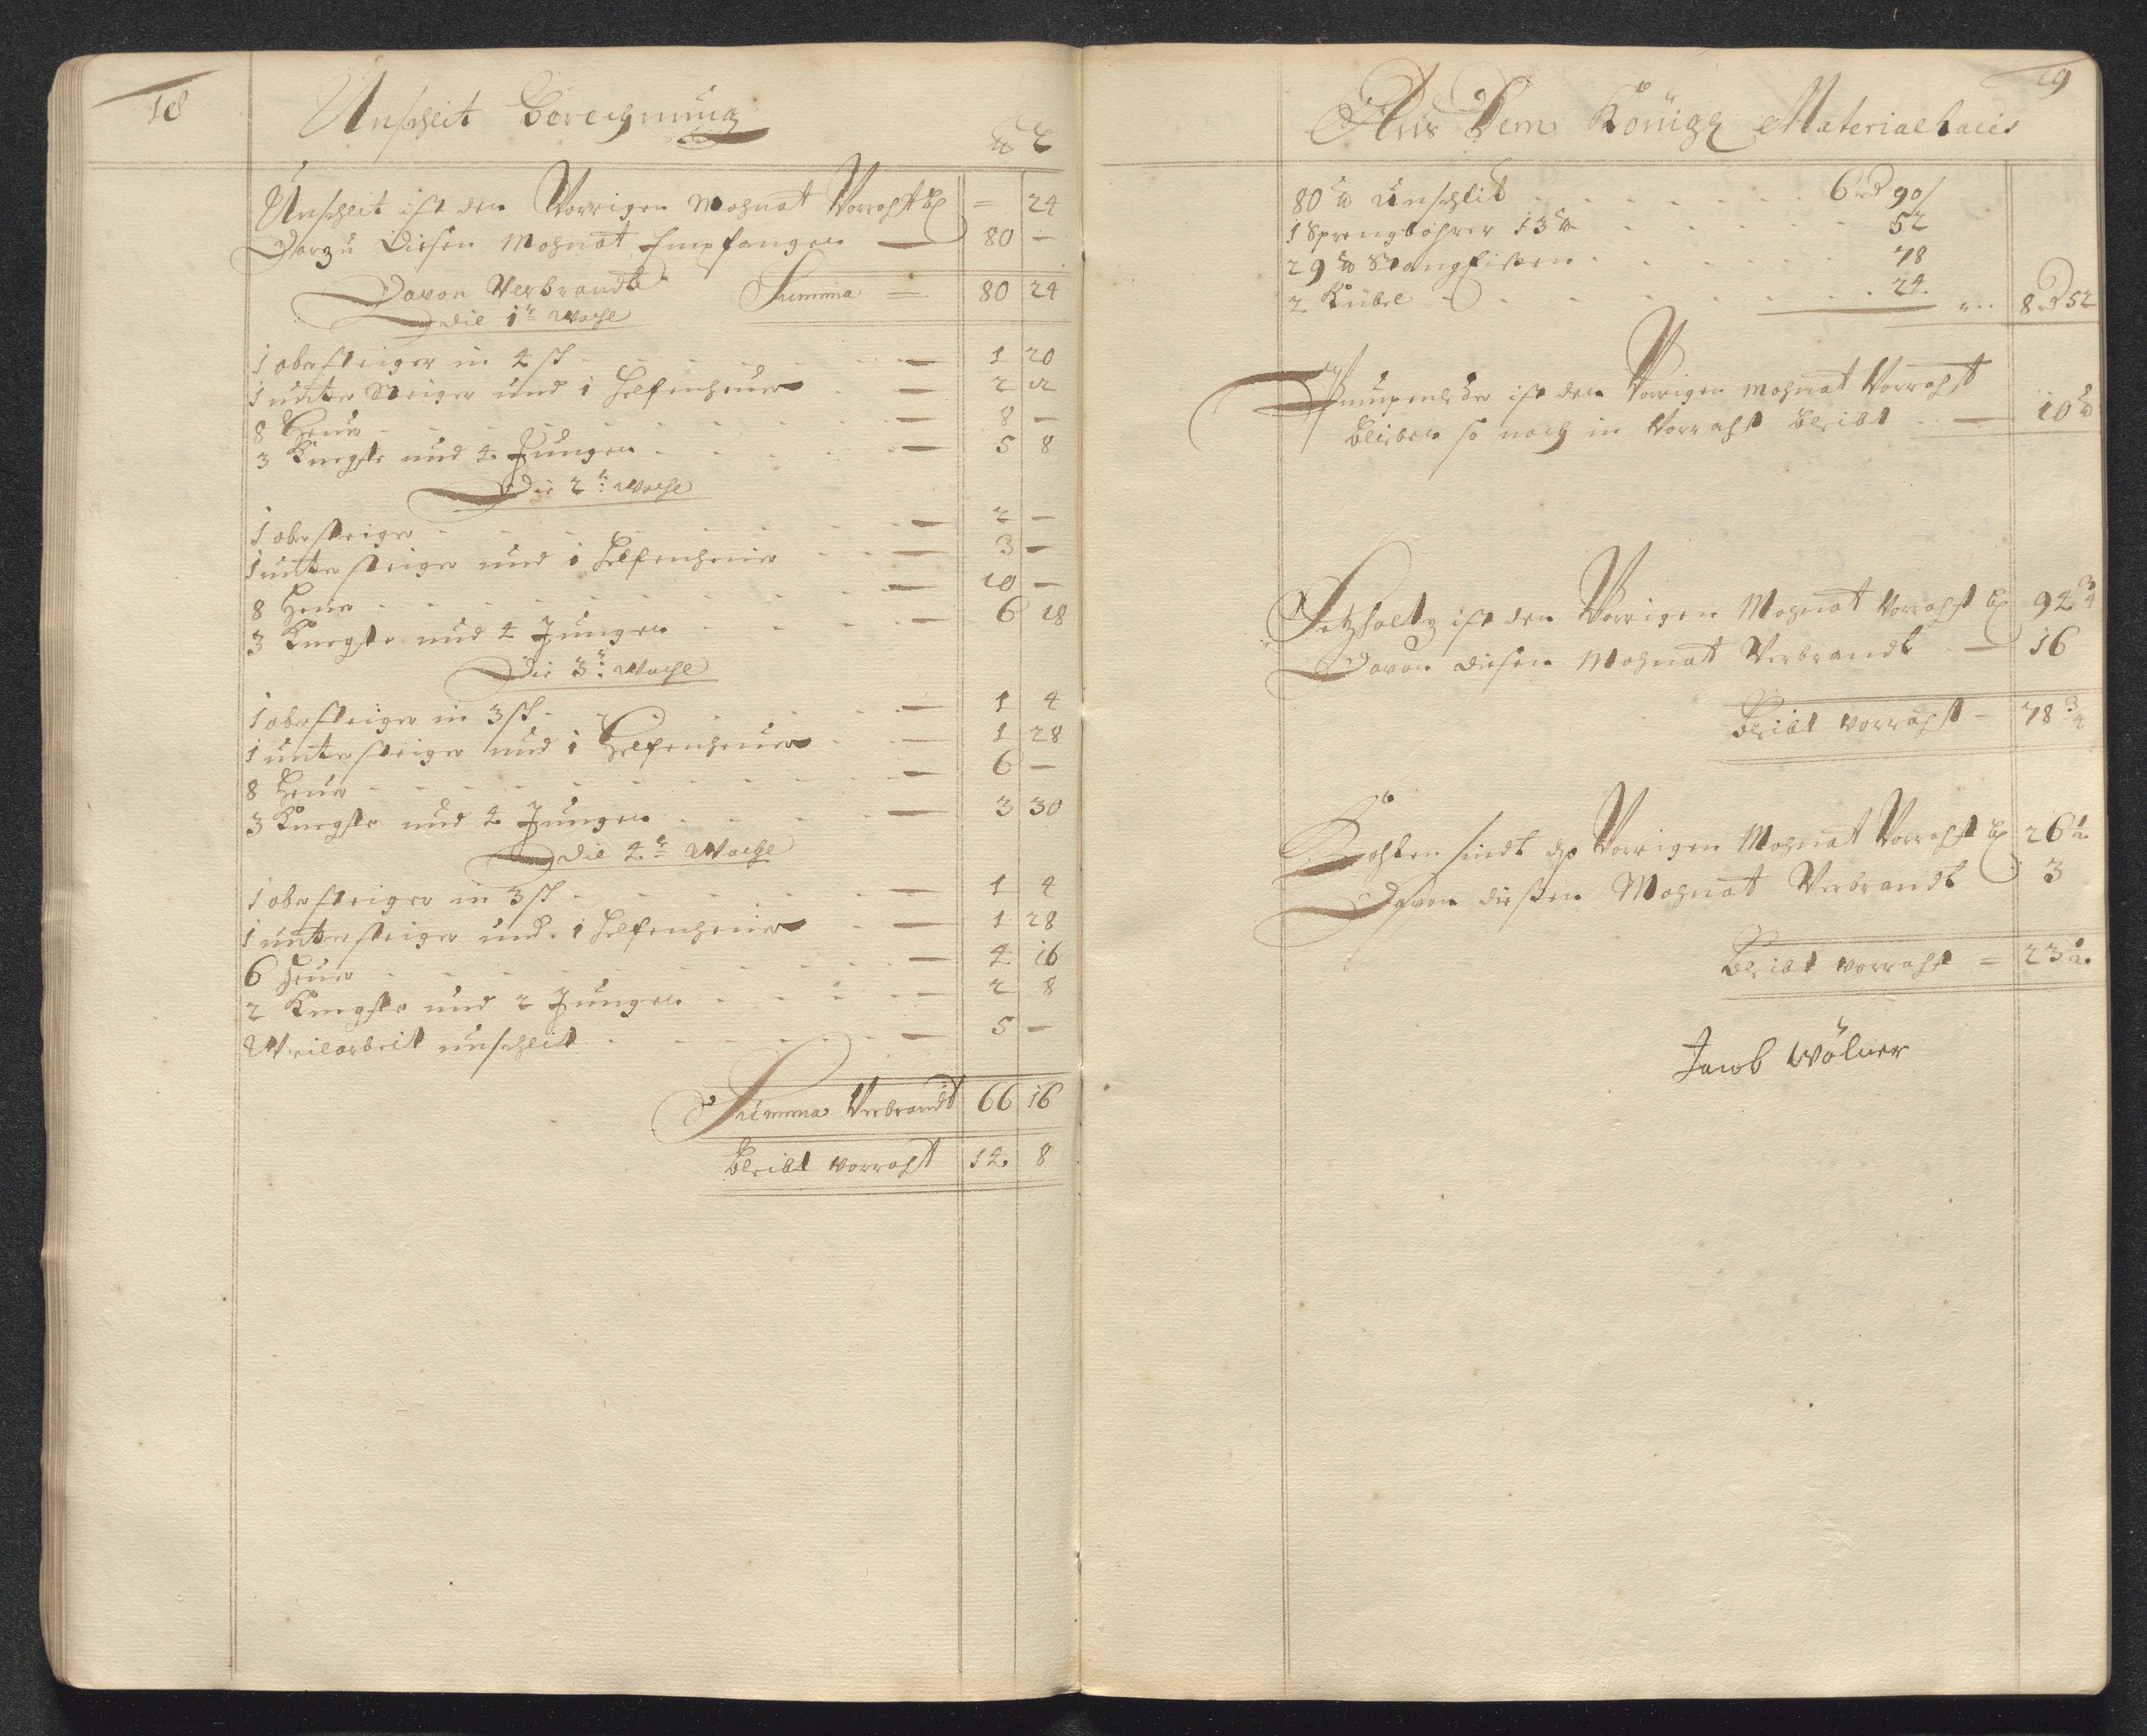 18
Unschleit Berechnung
℔ Lt
Unschleit ist den Vorrigen Mohnat Vorraht bl = 24
Darzu Diesen Mohnat Empfangen — 80 —
Davon Verbrandt Summa = 80 24
die 1te Woche
1 obersteiger in 4 sch - - - — 1 20
1 unter Steiger und 1 Helfenheuer - — 2 12
8 Heuer - - - - — 8 —
3 Knechte und 4 Jungen - - - — 5 8
Die 2te Woche
1 obersteiger - - - — 2 —
1 untersteiger und 1 Helfenheuer - - — 3 —
8 Heuer - - - - — 10 —
3 Knechte und 4 Jungen - - - — 6 18
Die 3te Woche
1 obersteiger in 3 sch - - - — 1 4
1 untersteiger und 1 Helfenheuer - — 1 28
8 Heuer - - - - — 6 —
3 Knechte und 4 Jungen - - - — 3 30
Die 4te Woche
1 obersteiger in 3 sch - - - — 1 4
1 untersteiger und 1 Helfenheuer - — 1 28
6 Heuer - - - - — 4 16
2 Knechte und 2 Jungen - - - — 2 8
Weilarbeit unschleit - - - — 5 —
Summa Verbrandt 66 16
bleibt vorraht 14 8
19
Aus Dem Königl Materialhaus
80 ℔ Unschlit - - - 6 rd 90
1 Sprengbohrer 13 ℔ - - - 52
29 ℔ Stangeisen - - - 78
2 Kübel - - - 24 - - 8 rd 52
Pumpenleder ist den Vorrigen Mohnat Vorraht
blieben so noch in Vorraht bleibt - — 10 ℔
Setzholtz ist den Vorrigen Mohnat Vorraht bl 94 3/4
Davon diesen Mohnat Verbrandt — 16
bleibt vorraht - 78 3/4
Kohlen sindt Vorrigen Mohnat Vorraht bl 26 1/2
Davon diesen Mohnat Verbrandt 3
bleibt vorraht = 23 1/2
Jacob Wölner